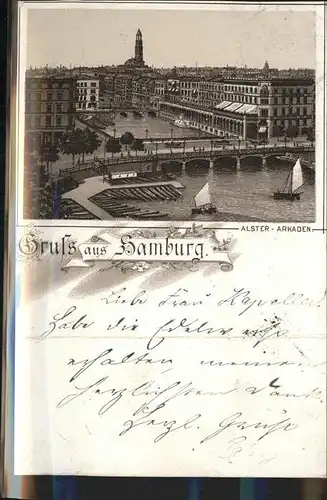 ALSTER - ARKADEN.
Gruſs aus Hamburg.
Liebe Frau Kapelle
Habe die Edelweiß
erhalten, meinen
herzlichsten Dank.
Herzl. Grüße